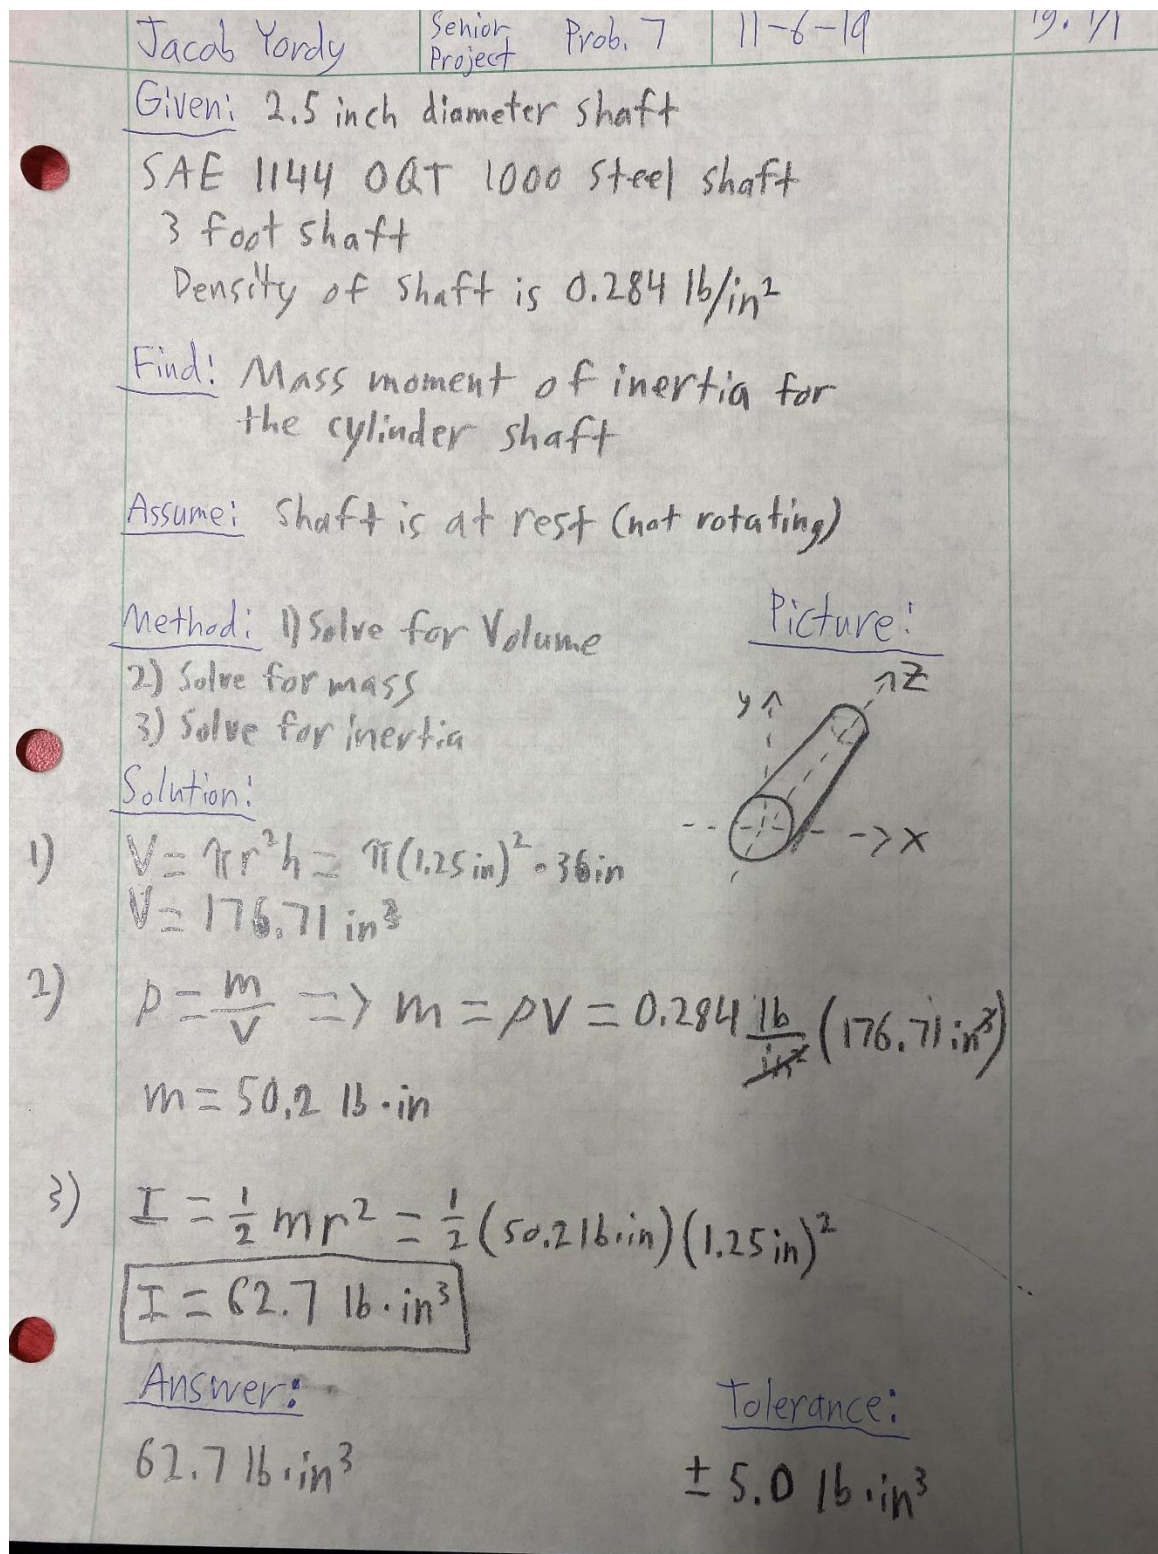 Jacob Yordy Senior Project Prob. 7 11-6-19 Pg. 1/1
Given: 2.5 inch diameter shaft
SAE 1144 OQT 1000 Steel shaft
3 foot shaft
Density of shaft is 0.284 lb/in²
Find: Mass moment of inertia for
the cylinder shaft
Assume: Shaft is at rest (not rotating)
Method: 1) Solve for Volume
2) Solve for mass
3) Solve for inertia
Picture:
y
z
x
Solution:
1) V = πr²h = π(1.25 in)² · 36 in
V = 176.71 in³
2) ρ = m/V => m = ρV = 0.284 lb/in² (176.71 in³)
m = 50.2 lb·in
3) I = 1/2 mr² = 1/2 (50.2 lb·in)(1.25 in)²
I = 62.7 lb·in³
Answer:
62.7 lb·in³
Tolerance:
± 5.0 lb·in³